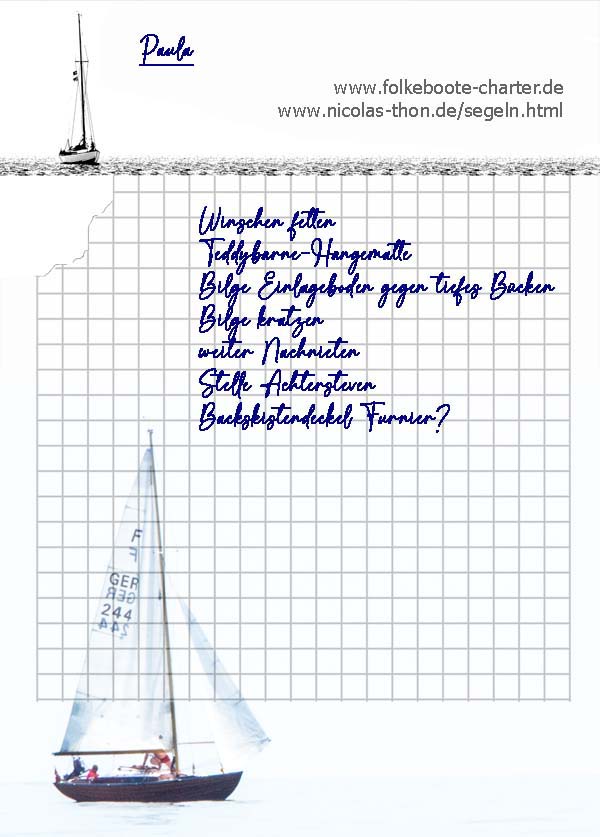 Paula
www.folkeboote-charter.de
www.nicolas-thon.de/segeln.html
Winschen fetten
Teddybarne-Hangematte
Bilge Einlageboden gegen tiefes Bucken
Bilge kratzen
weiter Nachnieten
Stelle Achtersteven
Backskistendeckel Furnier?
F
F
GER
GER
244
244